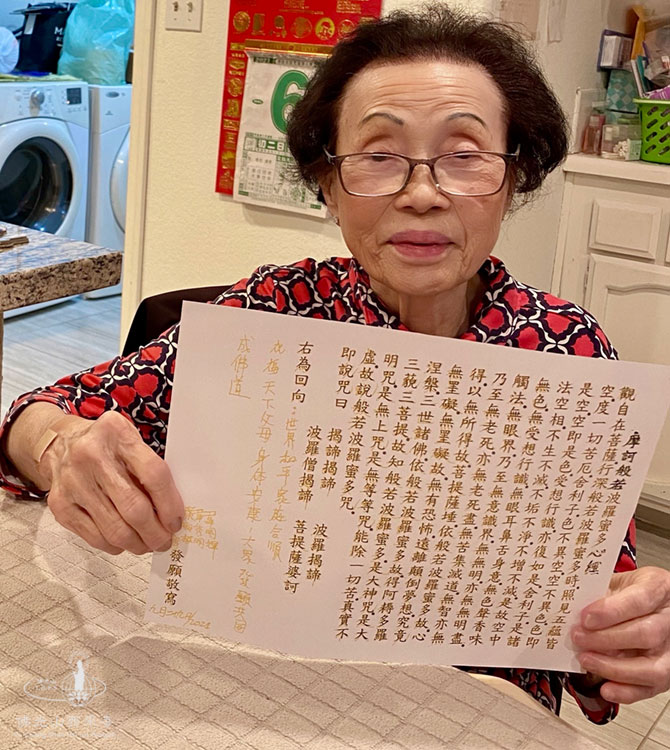 摩訶般若波羅蜜多心經
觀自在菩薩行深般若波羅蜜多時照見五蘊皆
空度一切苦厄舍利子色不異空空不異色色即
是空空即是色受想行識亦復如是舍利子是諸
法空相不生不滅不垢不淨不增不減是故空中
無色無受想行識無眼耳鼻舌身意無色聲香味
觸法無眼界乃至無意識界無無明亦無無明盡
乃至無老死亦無老死盡無苦集滅道無智亦無
得以無所得故菩提薩埵依般若波羅蜜多故心
無罣礙無罣礙故無有恐怖遠離顛倒夢想究竟
涅槃三世諸佛依般若波羅蜜多故得阿耨多羅
三藐三菩提故知般若波羅蜜多是大神咒是大
明咒是無上咒是無等等咒能除一切苦真實不
虛故說般若波羅蜜多咒
即說咒曰 揭諦揭諦 波羅揭諦
波羅僧揭諦 菩提薩婆訶
右為回向:世界和平 家庭合順
天下父母 身体安康 大眾發願
成佛道
發願敬寫
6
初二